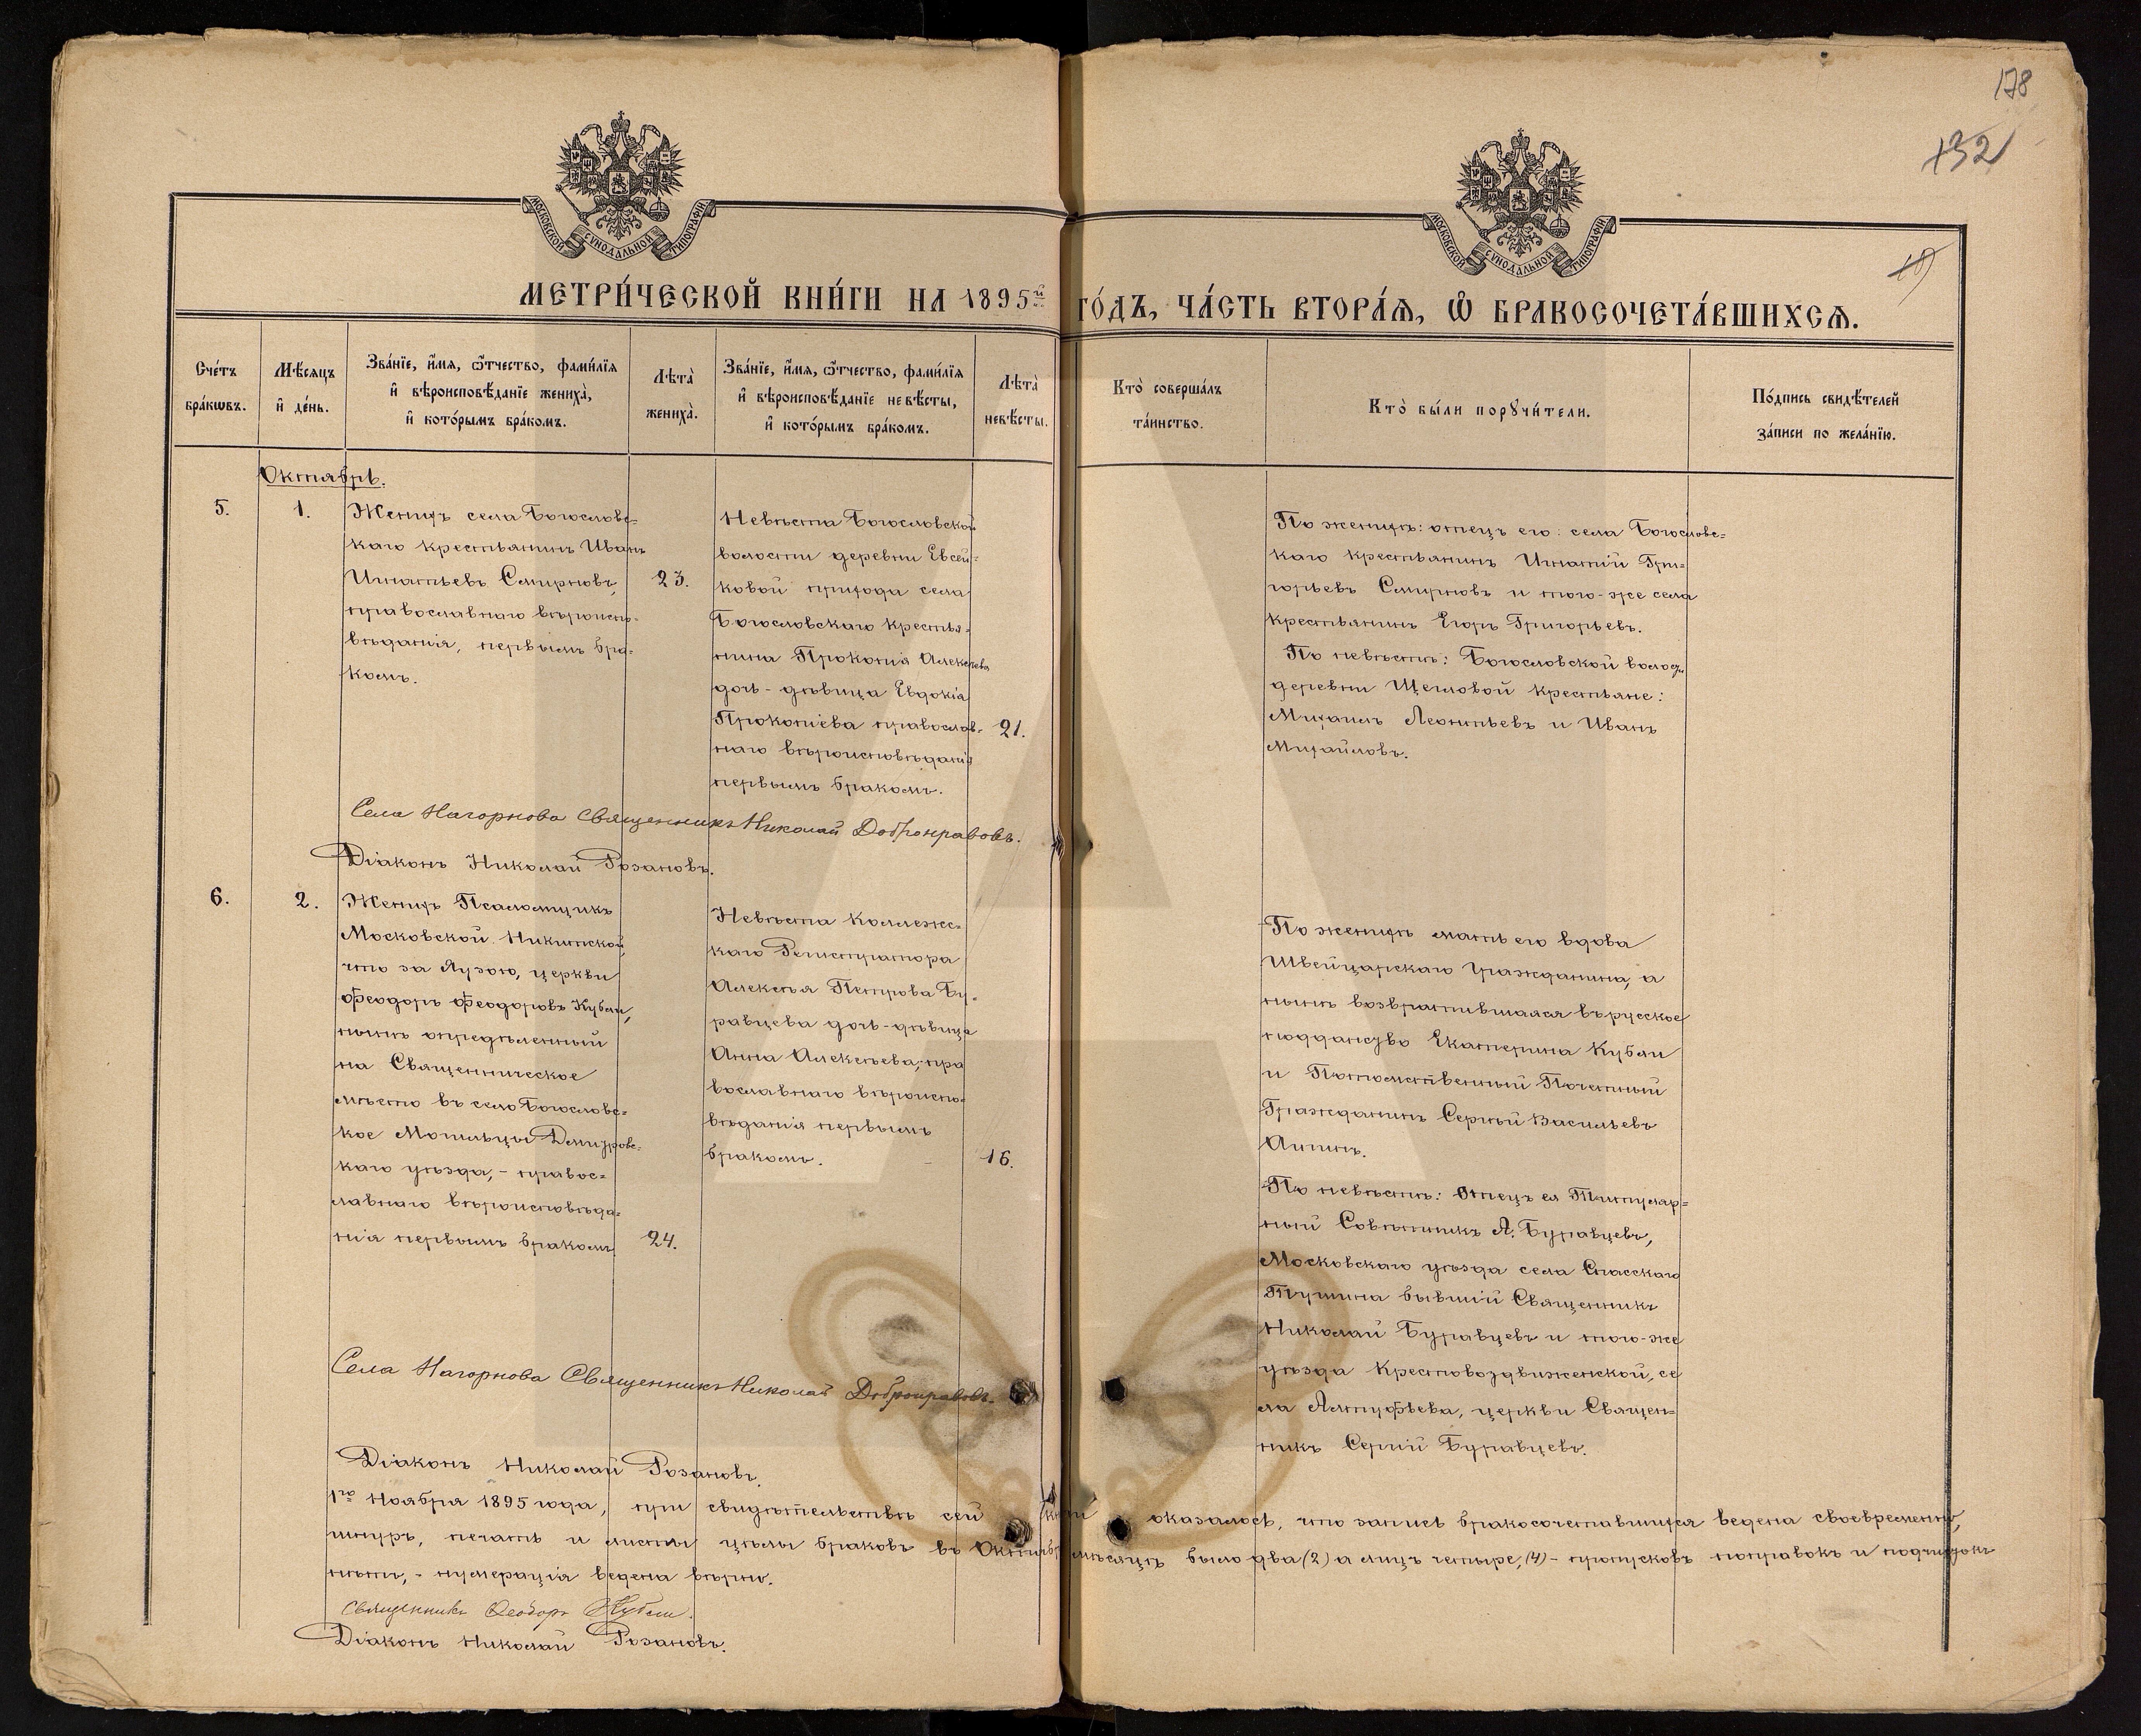 178
132
МОСКОВСКОЙ СѴНОДАЛЬНОЙ ТИПОГРАФІИ
МОСКОВСКОЙ СѴНОДАЛЬНОЙ ТИПОГРАФІИ
МЕТРИ́ЧЕСКОЙ КНИ́ГИ НА 1895й ГО́ДЪ, ЧА́СТЬ ВТОРА́Ѧ, Ѽ БРАКОСОЧЕТА́ВШИХСѦ.
Сче́тъ
бра́кѡвъ.
Мѣ́сѧцъ
и҆ де́нь.
Зва́нїе, и҆́мѧ, ѻ҆́тчество, фами́лїѧ
и҆ вѣроисповѣ́данїе жениха̀,
и҆ кото́рымъ бра́комъ.
Лѣ̑та̀
жениха̀.
Зва́нїе, и҆́мѧ, ѻ҆́тчество, фами́лїѧ
и҆ вѣроисповѣ́данїе невѣ́сты,
и҆ кото́рымъ бра́комъ.
Лѣ̑та̀
невѣ́сты.
Кто̀ соверша́лъ
та́инство.
Кто̀ бы́ли порꙋчи́тели.
По́дпись свидѣ́телей
за́писи по жела́нїю.
Октябрь.
5.
1.
Женихъ села Богословс-
каго крестьянинъ Иванъ
Игнатьевъ Смирновъ,
православнаго вѣроиспо-
вѣданія, первымъ бра-
комъ.
23.
Невѣста Богословской
волости деревни Евсей-
ковой прихода села
Богословскаго крестья-
нина Прокопія Алексѣева
дочь - дѣвица Евдокія
Прокопіева православ-
наго вѣроисповѣданія
первымъ бракомъ.
21.
По женихѣ: отецъ его: села Богословс-
каго крестьянинъ Игнатій Гри-
горьевъ Смирновъ и того-же села
крестьянинъ Егоръ Григорьевъ.
По невѣстѣ: Богословской волос.
деревни Щегловой крестьяне:
Михаилъ Леонтьевъ и Иванъ
Михайловъ.
Села Нагорнова Священникъ Николай Добронравовъ.
Діаконъ Николай Розановъ.
6.
2.
Женихъ Псаломщикъ
Московской Никитской,
что за Яузою, церкви
Ѳеодоръ Ѳеодоровъ Кубли,
нынѣ опредѣленный
на Священническое
мѣсто въ село Богословс-
кое Могильцы Дмитровс-
каго уѣзда, - правос-
лавнаго вѣроисповѣда-
нія первымъ бракомъ
24.
Невѣста Коллежс-
каго Регистратора
Алексѣя Петрова Бу-
равцева дочь - дѣвица
Анна Алексѣева, пра
вославнаго вѣроиспо-
вѣданія первымъ
бракомъ.
16.
По женихѣ мать его вдова
Швейцарскаго гражданина, а
нынѣ возвратившаяся въ русское
подданство Екатерина Кубли
и Потомственный Почетный
Гражданинъ Сергѣй Васильевъ
По невѣстѣ: Отецъ ея Титуляр-
ный Совѣтникъ А. Буравцевъ,
Московскаго уѣзда села Спасскаго
Тушина бывшій Священникъ
Николай Буравцевъ и того-же
уѣзда Крестовоздвиженской, се
ла Алтуфьева, церкви Священ-
никъ Сергій Буравцевъ.
Села Нагорнова Священникъ Николай Добронравовъ.
Діаконъ Николай Розановъ.
1го Ноября 1895 года, при свидѣтельствѣ сей книги оказалось, что запись бракосочетавшихся ведена своевременно,
шнуръ, печать и листы цѣлы браковъ въ Октябрѣ мѣсяцѣ было два (2) а лицъ четыре, (4) - пропусковъ поправокъ и подчистокъ
нѣтъ, - нумерація ведена вѣрно.
Священникъ Ѳеодоръ Кубли.
Діаконъ Николай Розановъ.